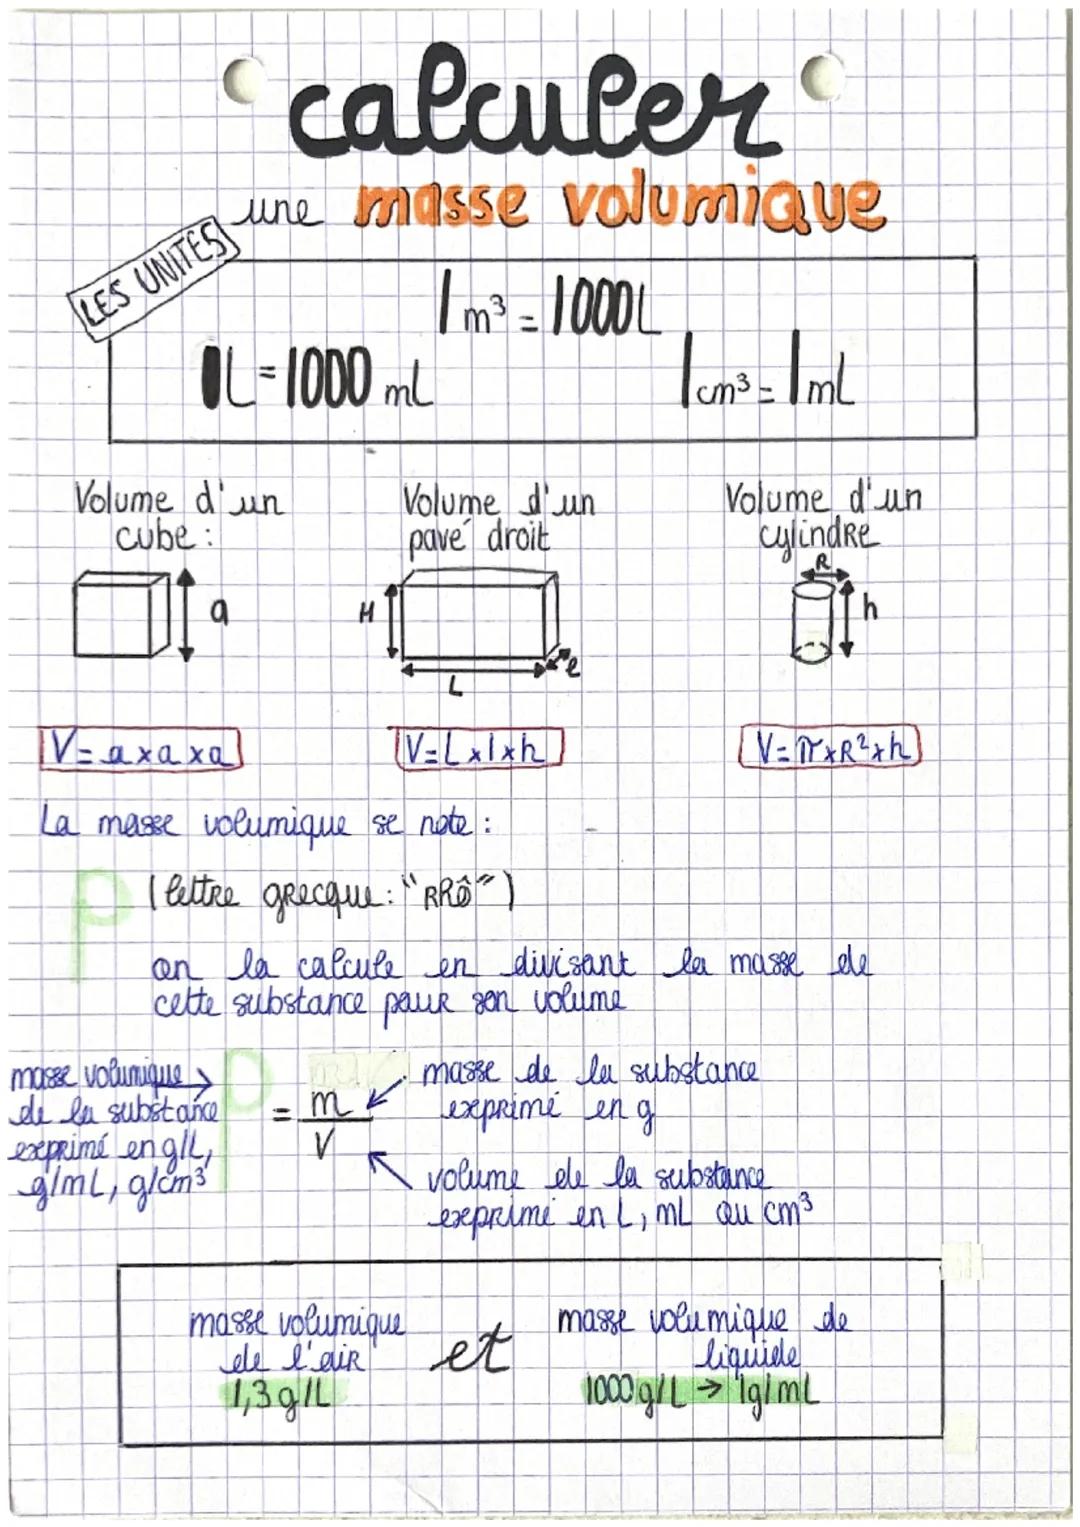 calculer
une masse volumique
LES UNITÉS
1 m³ = 1000L
1L = 1000 mL
1 cm³ = 1 mL
Volume d'un
cube :
a
V = a x a x a
Volume d'un
pavé droit
H
L
l
V = L x l x h
Volume d'un
cylindre
R
h
V = π x R² x h
La masse volumique se note :
ρ (lettre grecque : "RRô")
on la calcule en divisant la masse de
cette substance paur son volume
masse volumique
de la substance
exprimé en g/L,
g/mL, g/cm³
ρ = m
V
masse de la substance
exprimé en g
volume de la substance
exprimé en L, mL ou cm³
masse volumique
de l'air
1,3 g/L
et
masse volumique de
liquide
1000 g/L → 1g/mL